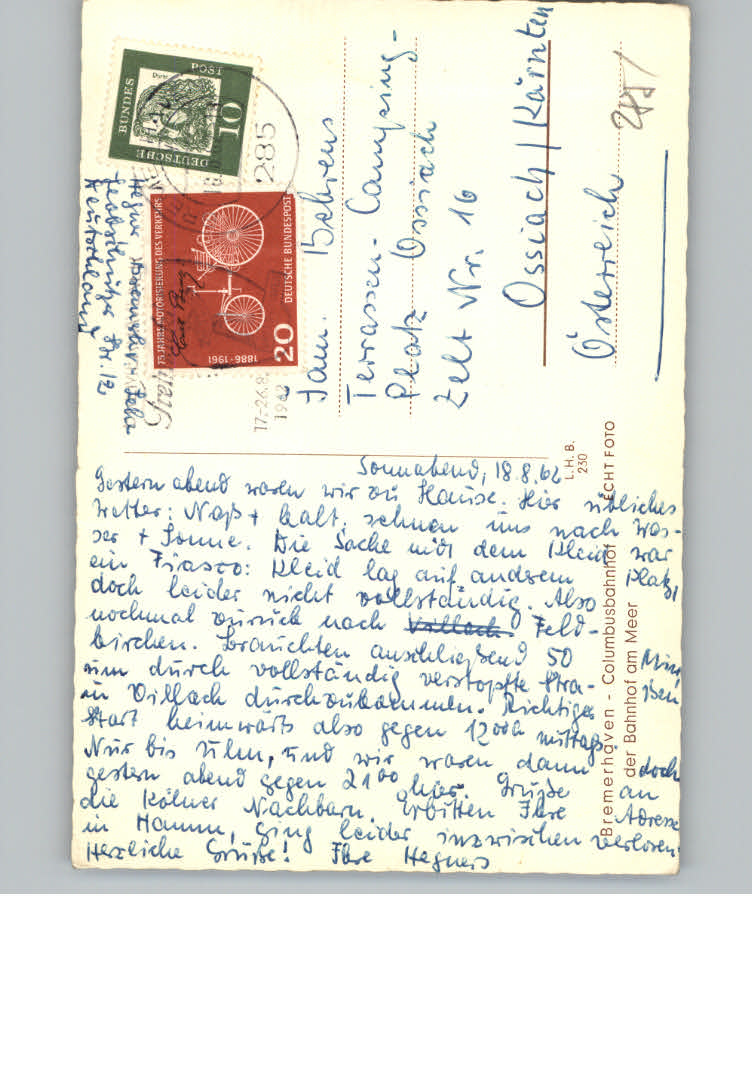 Sonnabend, 18.8.62
Gestern abend waren wir zu Hause. Hier übliches
Wetter: Naß + kalt, sehnen uns nach Was-
ser + Sonne. Die Sache mit dem Kleid war
ein Fiasco: Kleid lag auf anderem Platz,
doch leider nicht vollständig. Also
nochmal zurück nach Villach Feld-
kirchen. Brauchten anschließend 50 Min
um durch vollständig verstopfte Stra-
ßen in Villach durchzukommen. Richtiger
Start heimwärts also gegen 12 00h mittags
Nur bis Ulm, und wir waren dann doch
gestern abend gegen 21 00 hier. Grüße an
die Kölner Nachbarn. Erbitten Ihre Adresse
in Hamm, ging leider inzwischen verloren.
Herzliche Grüße! Ihre Hegners
Fam. Behrens
Terrassen-Camping-
Platz Ossiach
Zelt Nr. 16
Ossiach/Kärnten
Österreich
Hegner, Bremerhaven
Str. 12
Deutschland
DEUTSCHE BUNDES POST
10
285
75 JAHRE MOTORISIERUNG DES VERKEHRS
1886-1961
20
DEUTSCHE BUNDESPOST
17.-26.8.
1962
L.H.B.
230
Bremerhaven - Columbusbahnhof ECHT FOTO
der Bahnhof am Meer